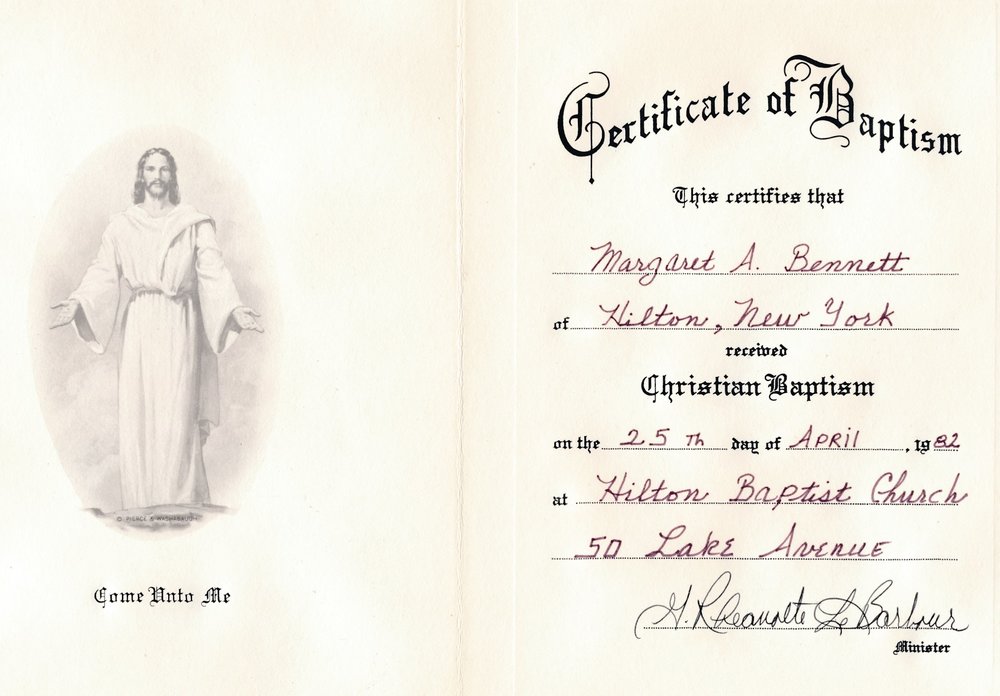 © PIERCE & WASHABAUGH
Come Unto Me
Certificate of Baptism
This certifies that
Margaret A. Bennett
of Hilton, New York
received
Christian Baptism
on the 25 Th day of April, 1982
at Hilton Baptist Church
50 Lake Avenue
Le Barbour
Minister